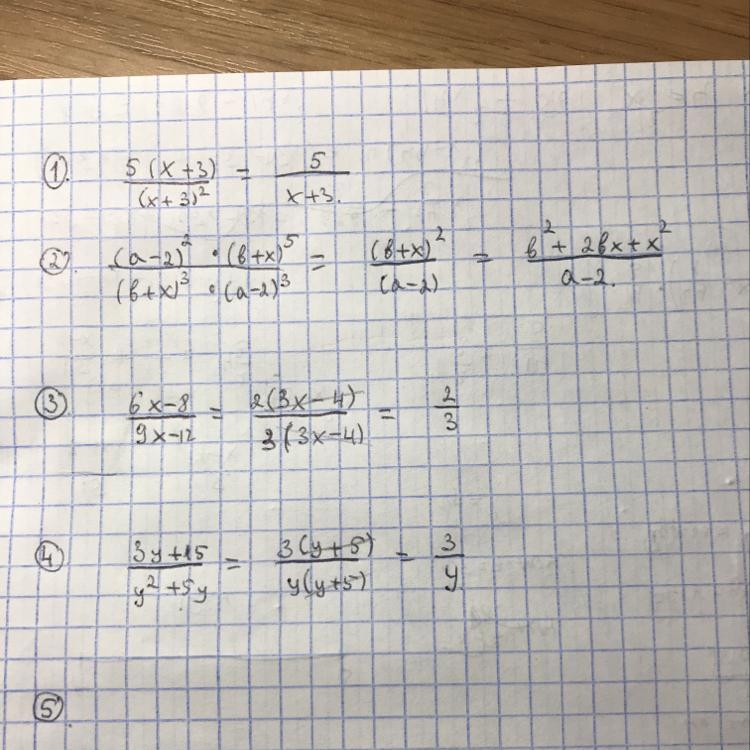 ① 5(x+3)/(x+3)² = 5/x+3.
② (a-2)² · (b+x)⁵/(b+x)³ · (a-2)³ = (b+x)²/(a-2) = b² + 2bx + x²/a-2.
③ 6x-8/9x-12 = 2(3x-4)/3(3x-4) = 2/3
④ 3y+15/y²+5y = 3(y+5)/y(y+5) = 3/y
⑤